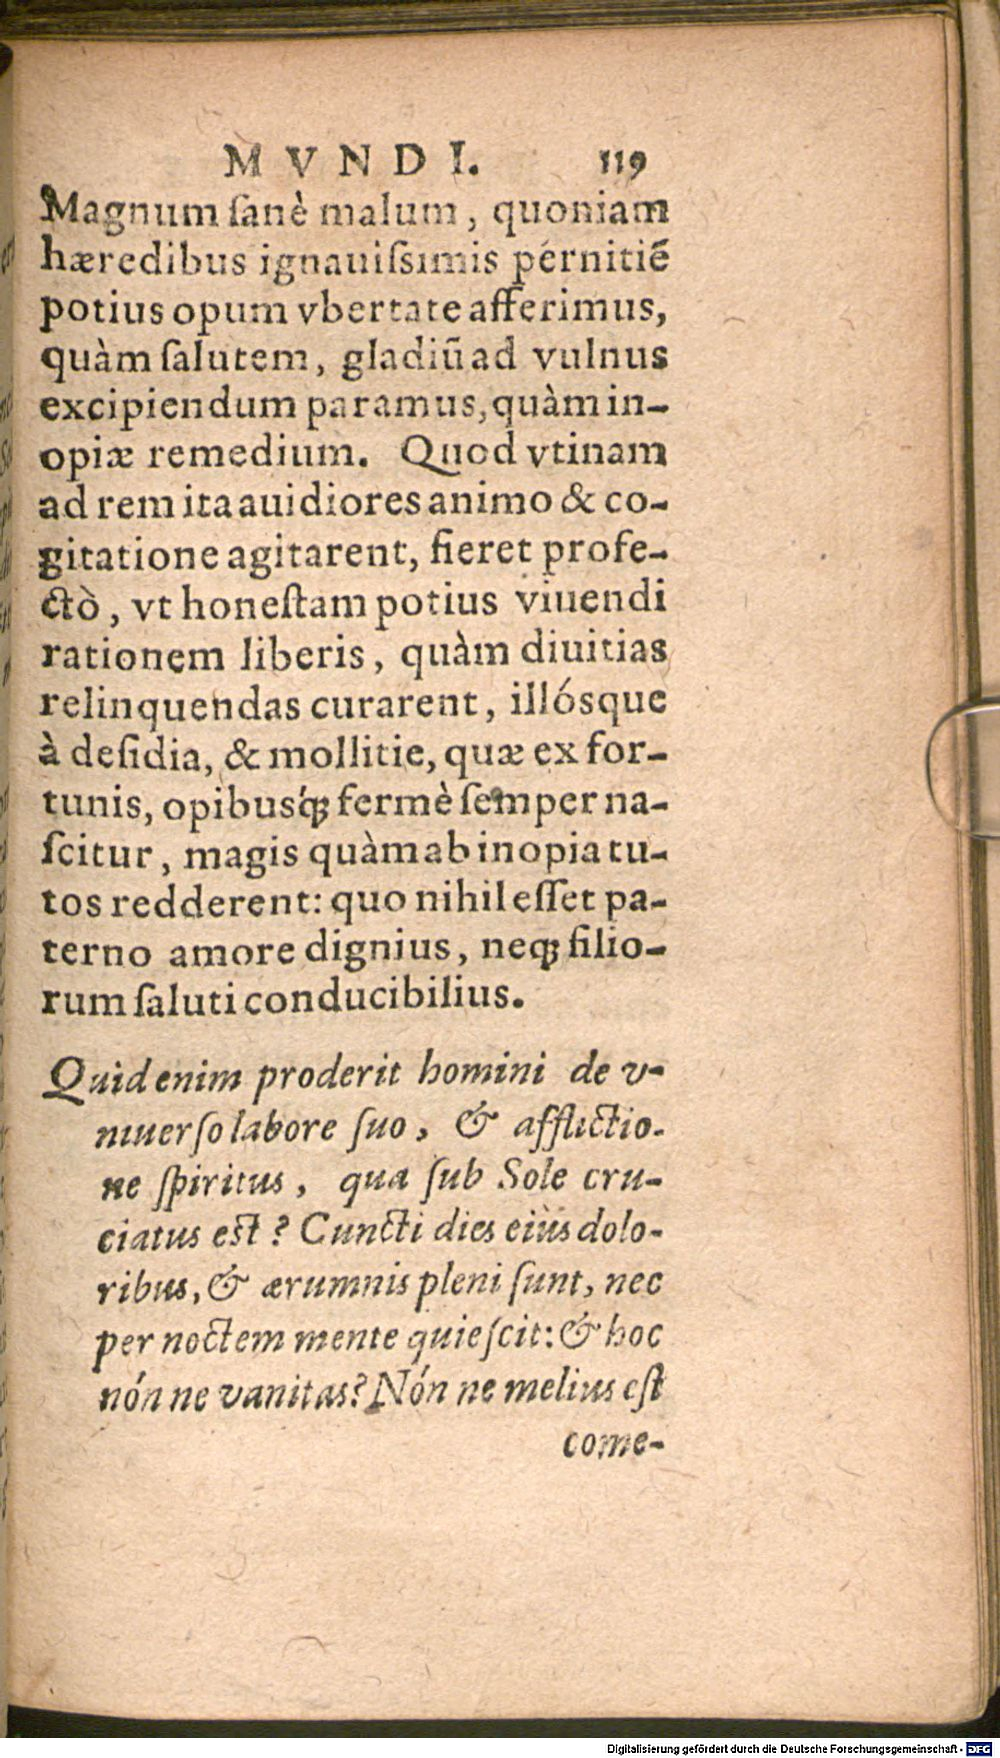 MVNDI. 119
Magnum ſanè malum, quoniam
hæredibus ignauiſsimis pérnitiē
potius opum vbertate afferimus,
quàm ſalutem, gladiũ ad vulnus
excipiendum paramus, quàm in-
opiæ remedium. Quod vtinam
ad rem ita auidiores animo & co-
gitatione agitarent, fieret profe-
ctò, vt honeſtam potius viuendi
rationem liberis, quàm diuitias
relinquendas curarent, illósque
à deſidia, & mollitie, quæ ex for-
tunis, opibusq́; fermè ſemper na-
ſcitur, magis quàm ab inopia tu-
tos redderent: quo nihil eſſet pa-
terno amore dignius, neq; filio-
rum ſaluti conducibilius.
Quid enim proderit homini de v-
niuerſo labore ſuo, & afflictio-
ne ſpiritus, qua ſub Sole cru-
ciatus est? Cuncti dies eiùs dolo-
ribus, & ærumnis pleni ſunt, nec
per noctem mente quieſcit: & hoc
nón ne vanitas? Nón ne melius eſt
come-
Digitalisierung gefördert durch die Deutsche Forschungsgemeinschaft - DFG